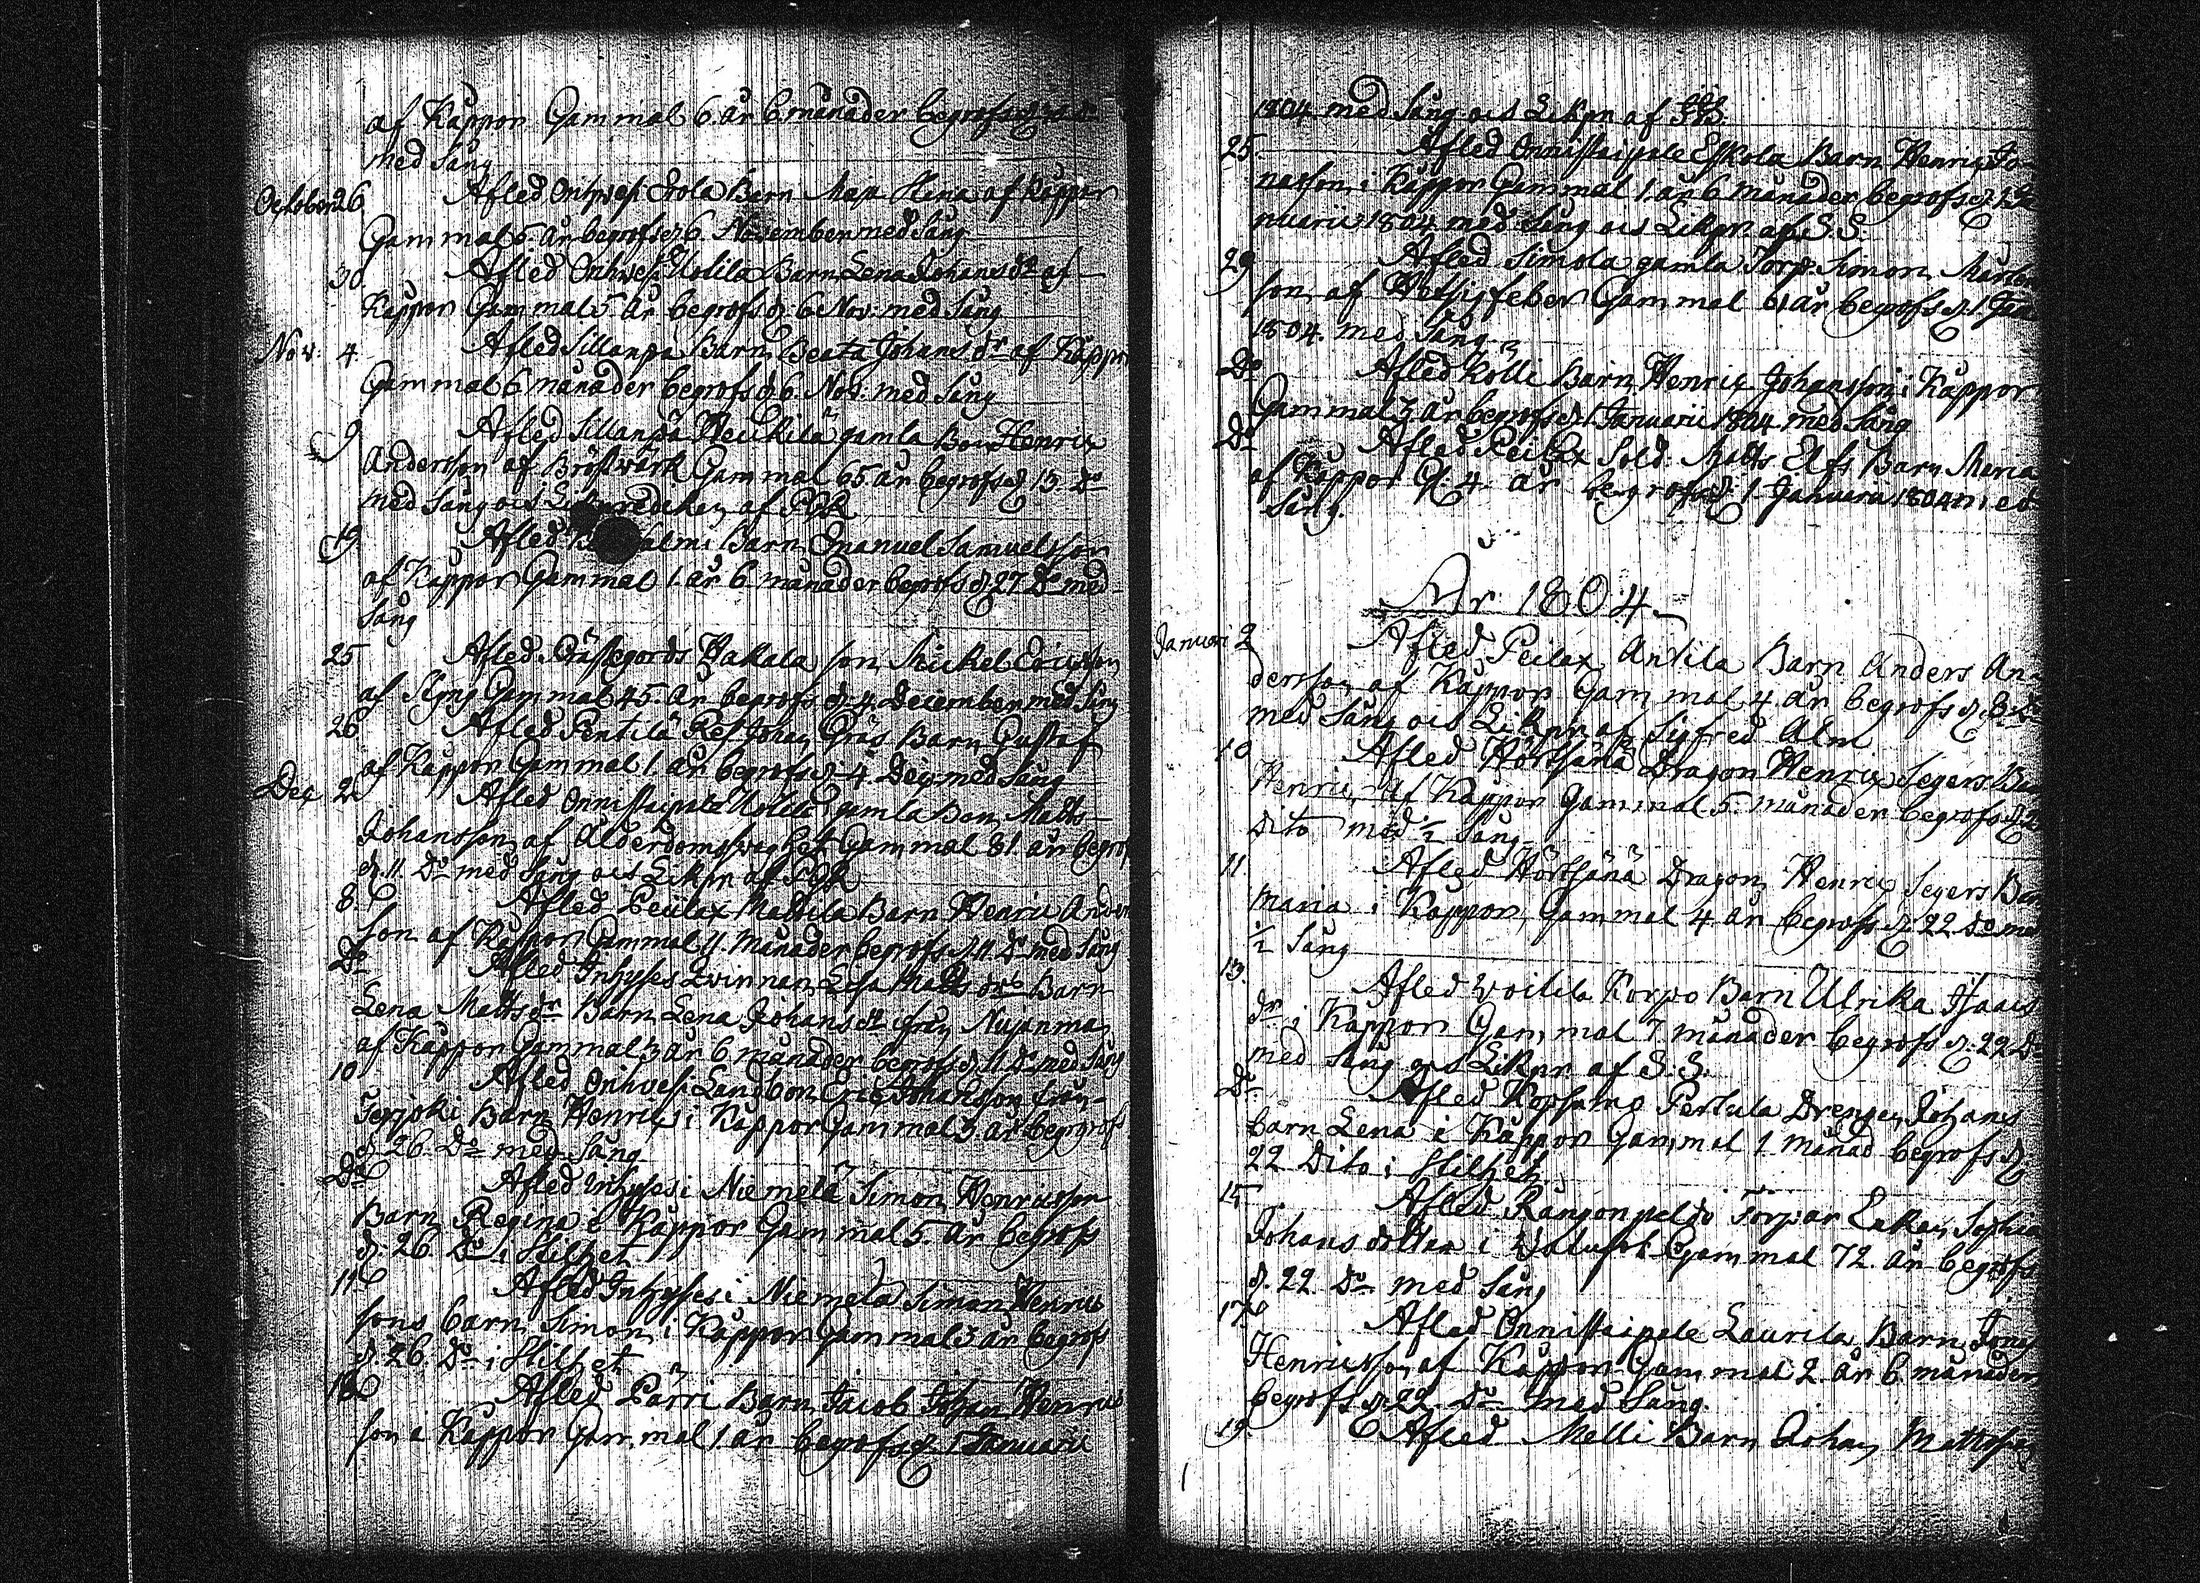 af Kåppor Gammal 6. år 6 månader begrofs d
med Sång
October 26 Afled Onhwesi Erola Barn Maja Lena af Kåppor
Gammal 5 år begrofs d 6. November med Sång
30. Afled Onhwesi Uotila Barn Lena Johans dr af
Kåppor Gammal 5 år begrofs d. 6 Nov: med Sång
Nov: 4. Afled Sillanpä Barn Beata Johans dr af Kåppor
Gammal 6 månader begrofs d 6. Nov: med Sång
9 Afled Sillanpä Heikilä gamla Bon Henric
Andersson af Bröstwärk Gammal 65 år begrofs d 13. Do
med Sång och Likpredikan af
19 Afled Barn Emanuel Samuelsson
af Kåppor Gammal 1. år 6 månader begrofs d 27 Do med
Sång
25 Afled Prästegords Hakala son Mickel Ericsson
af Gammal 45. år begrofs d. 4. December med Sång
26 Afled Pentilä Johan Gräs Barn Gustaf
af Kåppor Gammal 1 år begrofs d. 4 Dec: med Sång
Dec 2. Afled Onnistaipale Uotila gamla Bon Matts
Johansson af Ålderdomswaghet Gammal 81 år begrof
d. 11. Do med Sång och Likpn af
8. Afled Peilax Mattila Barn Henric Anders
son af Kåppor Gammal 11. månader begrofs d 11 Do med Sång
Do Afled Inhyses Qvinnan Lisa Matts drs Barn
Lena Matts dr Barn Lena Johans dr från Nujanmaa
af Kåppor Gammal 3 år 6 månader begrofs d 11 Do med Sång
10 Afled Onhvesi Langbon Eric Johansson från
Terjoki Barn Henric i Kåppor Gammal 3. år begrofs
d 26. Do med Sång
Do Afled Inhyses i Niemelä Simon Henricsson
Barn Regina i Kåppor Gammal 5. år begrofs
d. 26. Do i Stilhet
11. Afled Inhyses i Niemelä Simon Henrics
sons barn Simon i Kåppor Gammal 3 år begrofs
d. 26. Do i Stilhet
Afled Pärri Barn Jacob Johan Henrics
son i Kåppor Gammal 1. år begrofs d 1 Januarii
1804 med Sång och Likpn af S.S.
25. Afled Onnistaipale Eskola Barn Henric Jo
nasson i Kåppor Gammal 1. år 6 månader begrofs d 1 Ja
nuarii 1804 med Sång och Likpn af S.S.
29 Afled Simola gamla Torp: Simon Mårtens
son af Hetsigfeber Gammal 61 år begrofs d. 1. Jan
1804. med Sång
Do Afled Kolli Barn Henric Johansson i Kåppor
Gammal 3 år begrofs d 1 Januarii 1804 med Sång
Do Afled Peilax Sold: Matts Elfs Barn Maria
af Kåppor G: 4. år begrofs d: 1 Januarii 1804 med
Sång.
År 1804
Januari 2 Afled Peilax Antila Barn Anders An
dersson af Kåppor Gammal 4 år begrofs d. 8 Do
med Sång och Likpn af Sigfred Alm
10 Afled Hörhänä Dragon Henric Segers Ba
Henric af Kåppor Gammal 5. månader begrofs d 2
Dito med ½ Sång
11 Afled Hörhänä Dragon Henric Segers Bar
Maria i Kåppor Gammal 4 år begrofs d: 22 Do med
½ Sång
13. Afled Woitila Korpo Barn Ulrika Isaacs
dr i Kåppor Gammal 7. månader begrofs d: 22 Do
med Sång och Likpn af S. S.
Do Afled Kopsamo Pertula Drengen Johans
barn Lena i Kåppor Gammal 1 månad begrofs d
22 Dito i Stilhet
15 Afled Rangonpeldo Torpar Enkan Sophia
Johans dotter i Gammal 72. år begrofs
d. 22 Do med Sång
17 Afled Onnistaipale Laurila Barn Jonas
Henricsson af Kåppor Gammal 2. år 6. månader
begrofs d. 22. Do med Sång.
19. Afled Melli Barn Johan Mattsson